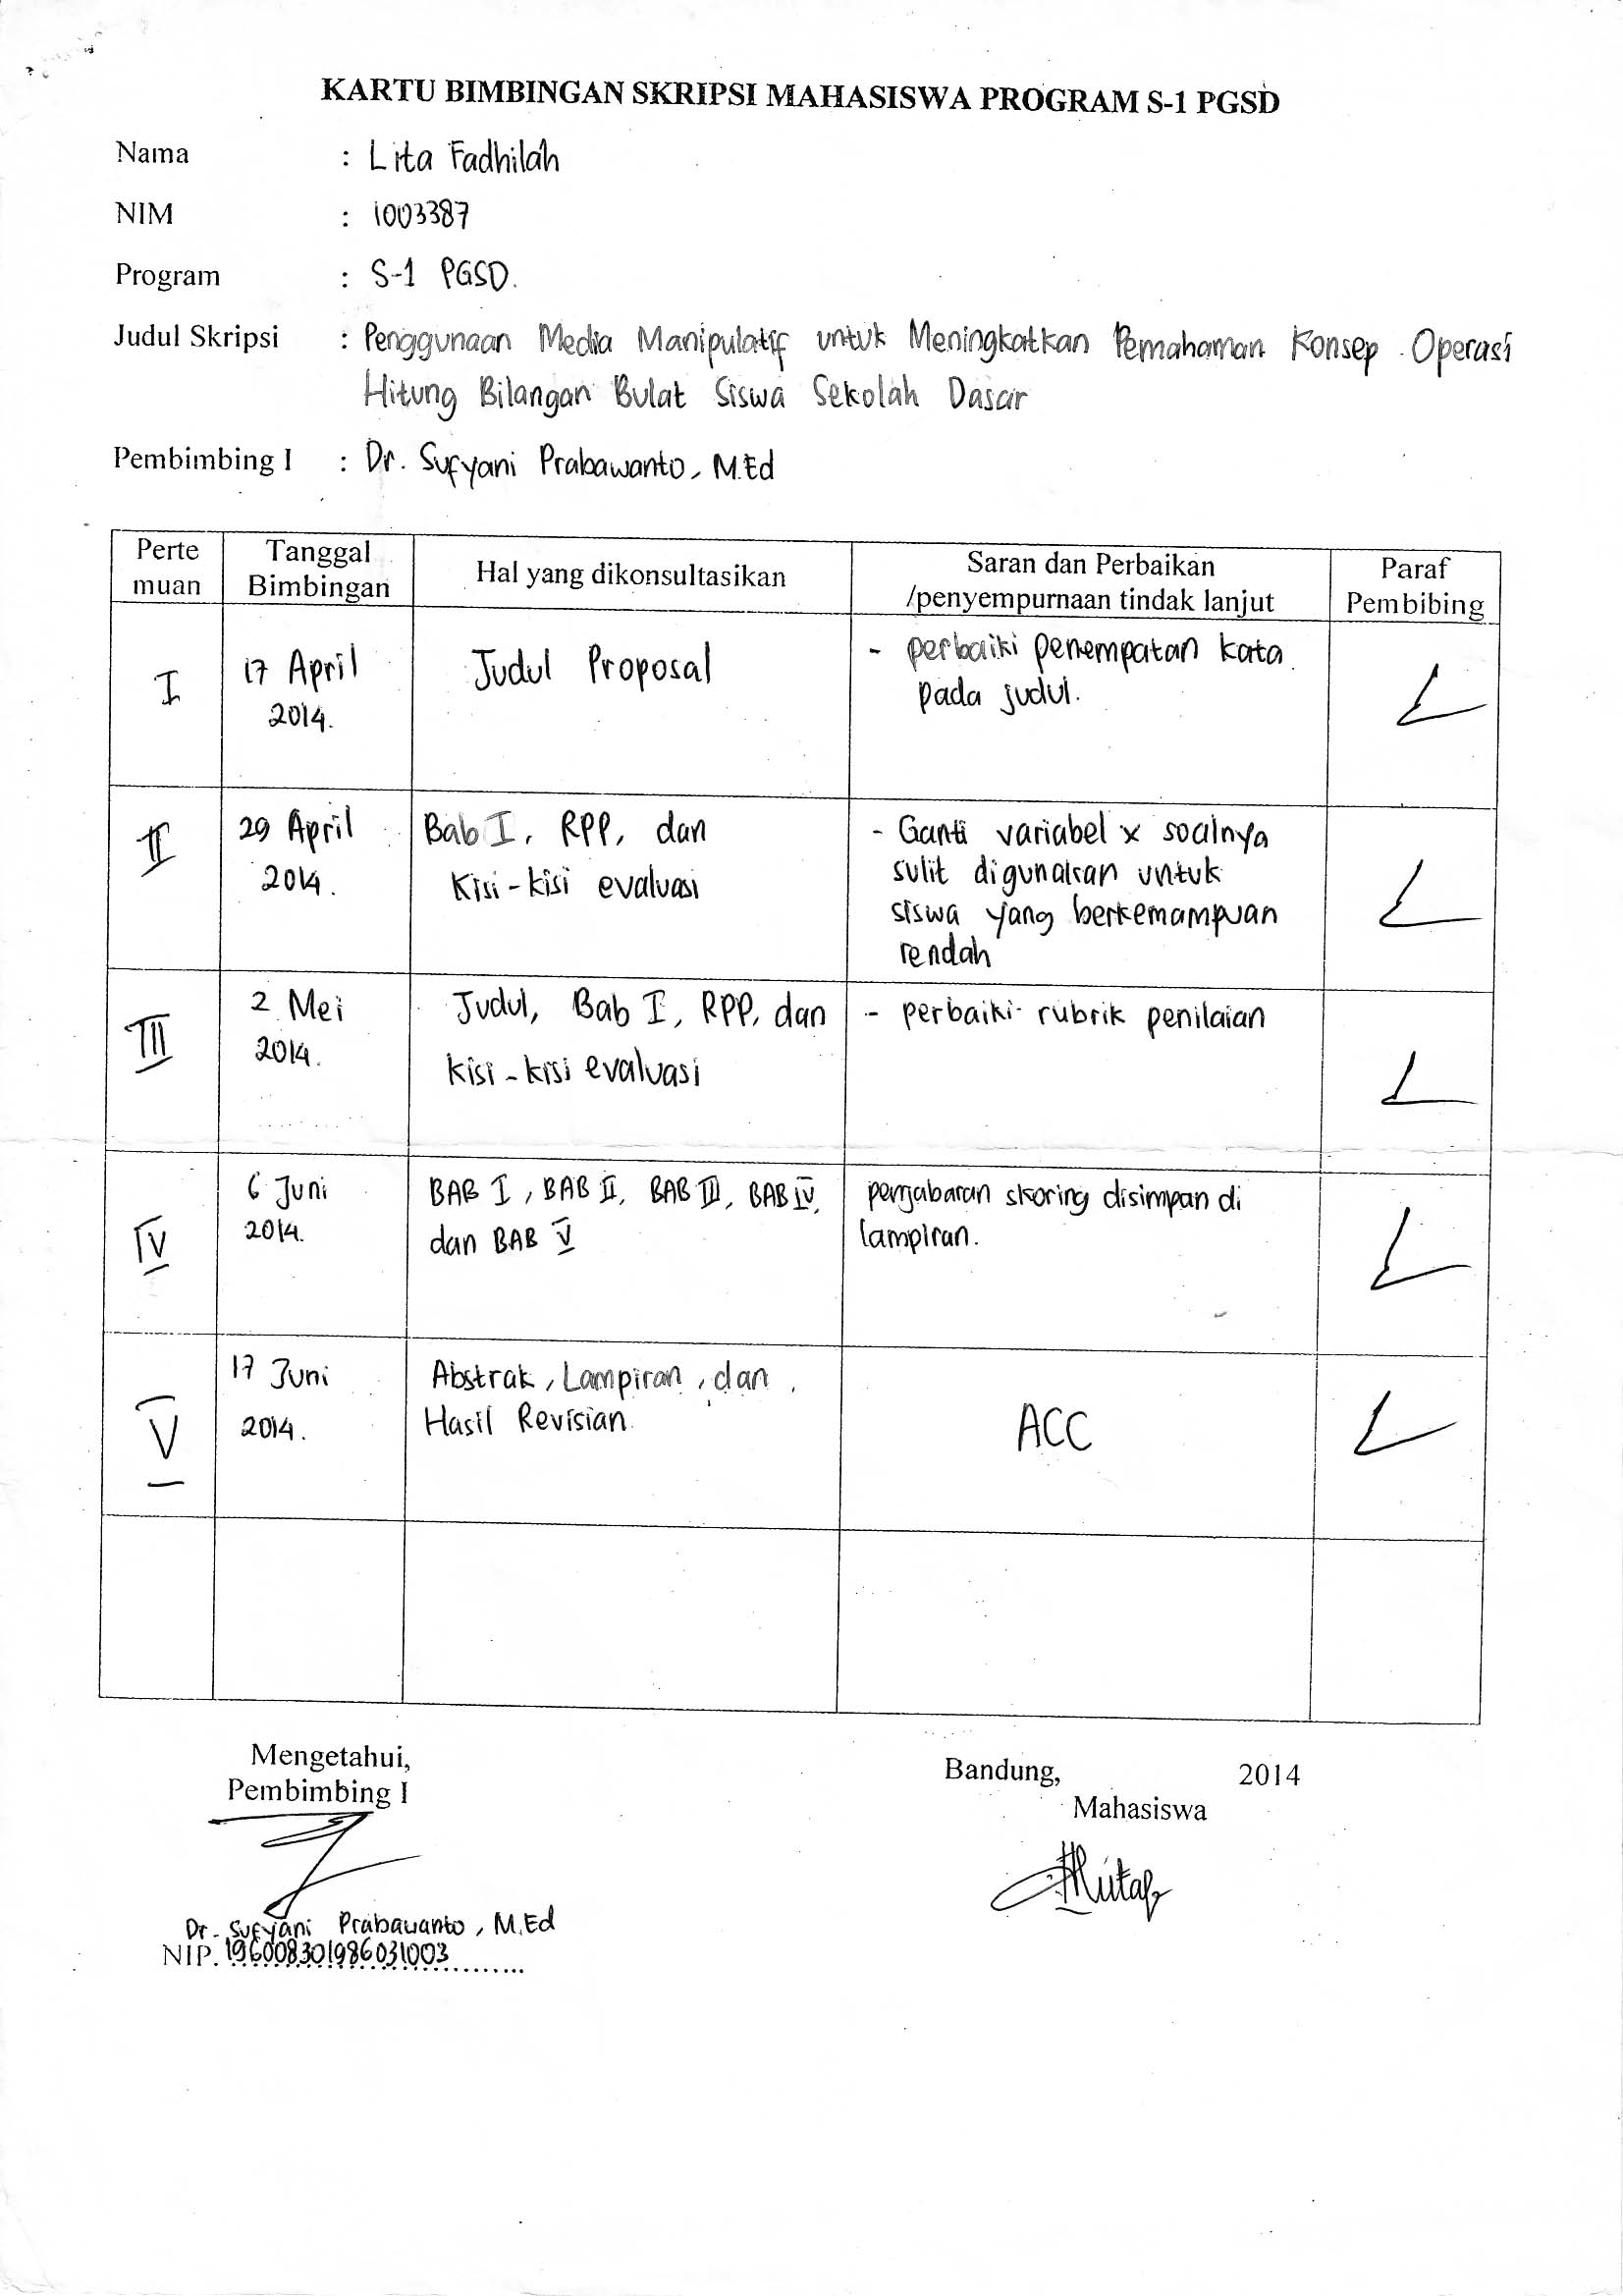 KARTU BIMBINGAN SKRIPSI MAHASISWA PROGRAM S-1 PGSD
Nama : Lita Fadhilah
NIM : 1003387
Program : S-1 PGSD.
Judul Skripsi : Penggunaan Media Manipulatif untuk Meningkatkan Pemahaman Konsep Operasi
Hitung Bilangan Bulat Siswa Sekolah Dasar
Pembimbing I : Dr. Sufyani Prabawanto, M.Ed
Perte
muan
Tanggal
Bimbingan
Hal yang dikonsultasikan
Saran dan Perbaikan
/penyempurnaan tindak lanjut
Paraf
Pembibing
I
17 April
2014.
Judul Proposal
- perbaiki penempatan kata
pada judul.
II
29 April
2014.
Bab I, RPP, dan
Kisi-kisi evaluasi
- Ganti variabel x soalnya
sulit digunakan untuk
siswa yang berkemampuan
rendah
III
2 Mei
2014.
Judul, Bab I, RPP, dan
kisi-kisi evaluasi
- perbaiki rubrik penilaian
IV
6 Juni
2014.
BAB I, BAB II, BAB III, BAB IV,
dan BAB V
penjabaran skoring disimpan di
lampiran.
V
17 Juni
2014.
Abstrak, Lampiran, dan
Hasil Revisian
ACC
Mengetahui,
Pembimbing I
Dr. Sufyani Prabawanto, M.Ed
NIP. 196008301986031003
Bandung, 2014
Mahasiswa